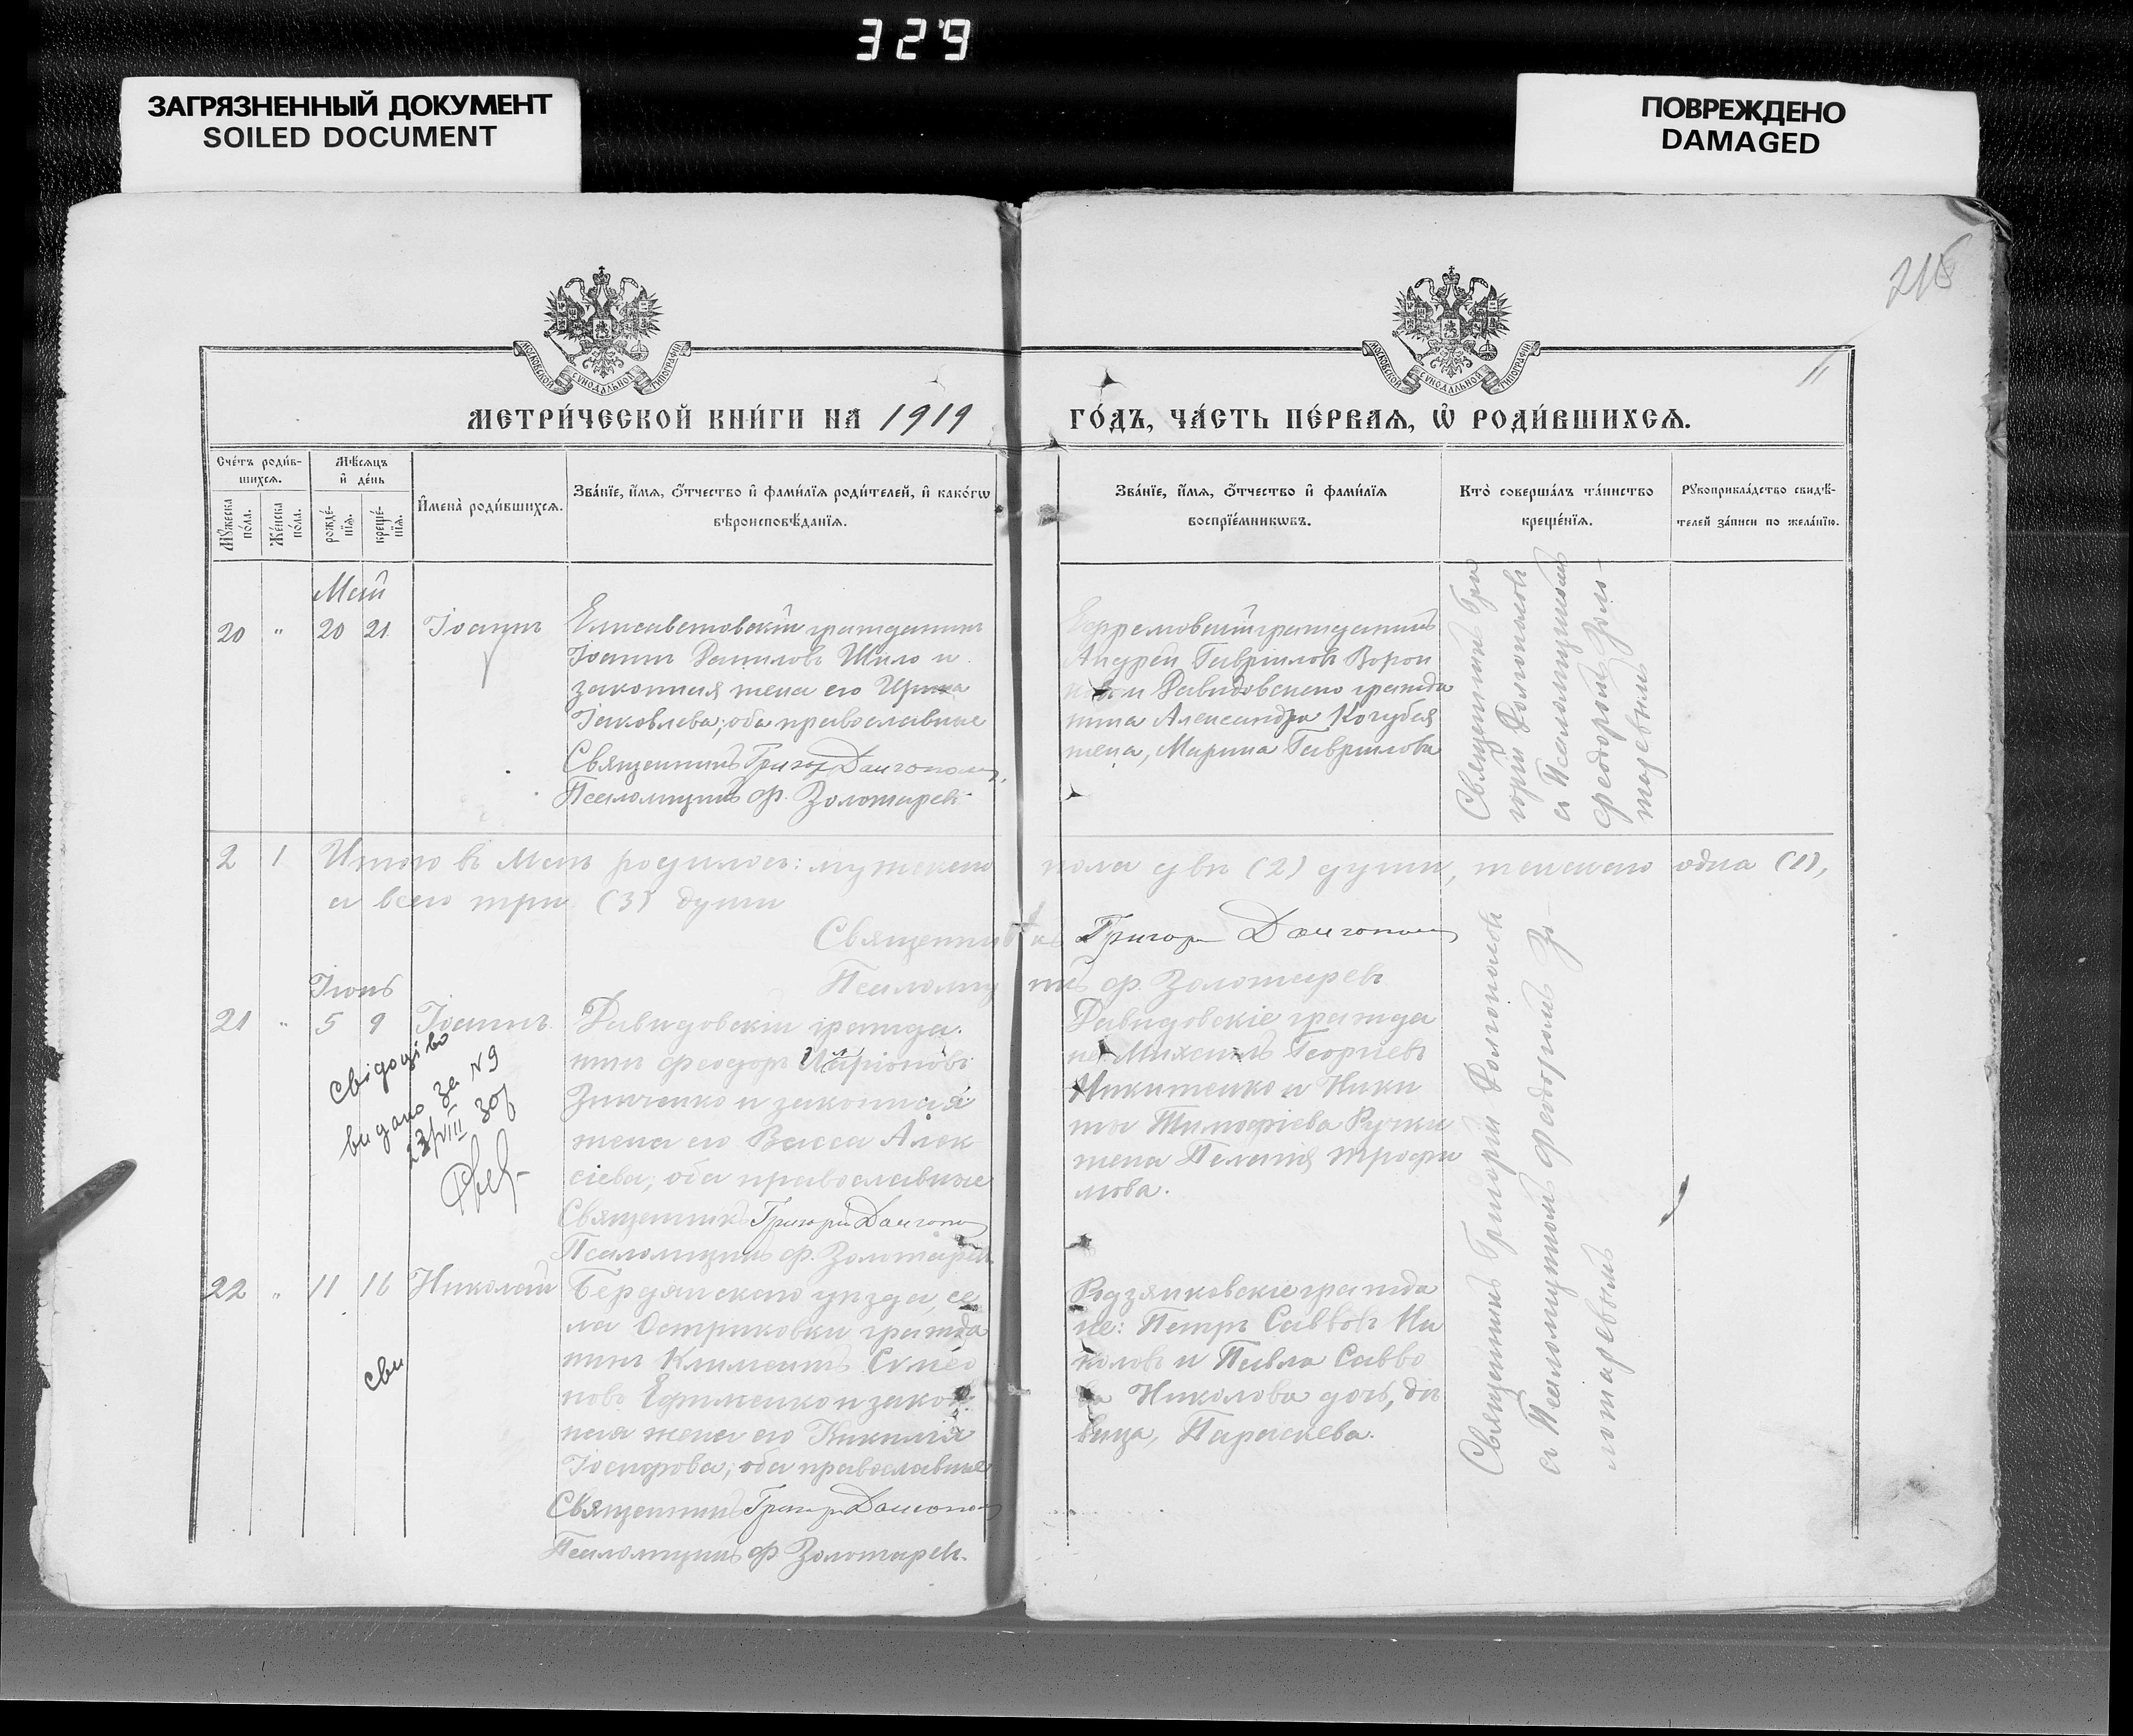 329
ЗАГРЯЗНЕННЫЙ ДОКУМЕНТ
SOILED DOCUMENT
ПОВРЕЖДЕНО
DAMAGED
МОСКОВСКОЙ СѴНОДАЛЬНОЙ ТИПОГРАФІИ
МОСКОВСКОЙ СѴНОДАЛЬНОЙ ТИПОГРАФІИ
11
МЕТРИ́ЧЕСКОЙ КНИ́ГИ НА 1919 ГО́ДЪ, ЧА́СТЬ ПЕ́РВАѦ, Ѡ҆ РОДИ́ВШИХСѦ.
Сче́тъ роди́в-
шихсѧ.
Мѹ́жеска по́ла.
Же́нска по́ла.
Мѣ́сѧцъ
и҆ де́нь
рожде́-
нїѧ.
креще́-
нїѧ.
И҆мена̀ роди́вшихсѧ.
Зва́нїе, и҆́мѧ, ѻ҆́тчество и҆ фами́лїѧ роди́телей, и҆ како́гѡ
вѣроисповѣ́данїѧ.
Зва́нїе, и҆́мѧ, ѻ҆́тчество и҆ фами́лїѧ
воспрїе́мникѡвъ.
Кто̀ соверша́лъ та́инство
креще́нїѧ.
Рѹкоприкла́дство свидѣ́-
телей за́писи по жела́нїю.
Май
20 " 20 21 Іоаннъ
Елисаветовскій гражданинъ
Іоаннъ Даниловъ Шило и
законная жена его Ирина
Іаковлева; оба православные
Священникъ Григор Долгополов
Псаломщикъ Ф. Золотарев
гражданинъ
Андрей Гавріиловъ Ворон
и Давидовскаго гражда
нина Александра Кочубея
жена, Марина Гавриилова
Священникъ Гри
горій Долгополовъ
съ Псаломщикомъ
Феодоромъ Золо-
таревымъ
2 1 Итого въ Маѣ родилось: мужескаго пола двѣ (2) души, женскаго одна (1),
а всего три (3) души
Священникъ Григор Долгополов
Псаломщикъ Ф. Золотаревъ
Іюнь
21 " 5 9 Іоаннъ
Давидовскій гражда
нинъ Феодоръ Иларіоновъ
Зинченко и законная
жена его Васса Алек
сіева; оба православные
Священникъ Григорій Долгопо
Псаломщикъ Ф. Золотарев
Давидовскіе гражда
не: Михаилъ Георгіевъ
Никитенко и Ники
ты Тимофіева Ручки
жена Пелагія Трофи
мова.
свідоцтво
видано за №9
23/VIII 30р
22 " 11 16 Николай
Бердянскаго уѣзда, се
ла Остриковки гражда
нинъ Климентъ Сѵмео
новъ Ефименко и закон
ная жена его Кикилія
Іосифова; оба православные
Священникъ Григор Долгопол
Псаломщикъ Ф Золотарев.
Родзянковскіе гражда
не: Петръ Саввовъ Ни
коловъ и Павла Савво
ва Николова дочь, дѣ
вица, Параскева.
Священникъ Григорій Долгополовъ
съ Псаломщикомъ Феодоромъ Зо-
лотаревымъ
сви